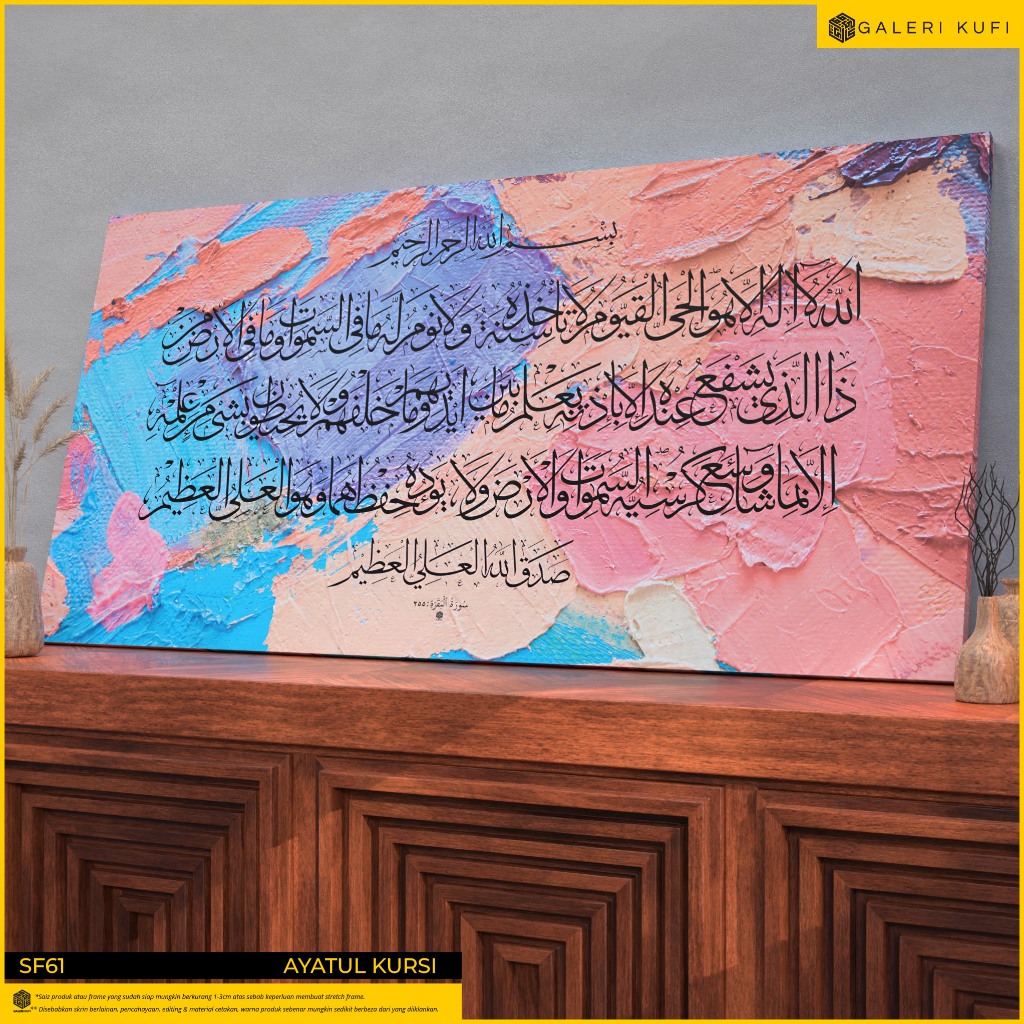 GALERI KUFI
بسم الله الرحمن الرحيم
الله لا اله الا هو الحي القيوم لا تأخذه سنة ولا نوم له ما في السموات وما في الارض
ذا الذي يشفع عنده الا باذنه يعلم ما بين ايديهم وما خلفهم ولا يحيطون بشيء من علمه
الا بما شاء وسع كرسيه السموات والارض ولا يؤده حفظهما وهو العلي العظيم
صدق الله العلي العظيم
سورة البقرة: ٢٥٥
SF61 AYATUL KURSI
*Saiz produk atau frame yang sudah siap mungkin berkurang 1-3cm atas sebab keperluan membuat stretch frame.
** Disebabkan skrin berlainan, pencahayaan, editing & material cetakan, warna produk sebenar mungkin sedikit berbeza dari yang diiklankan.